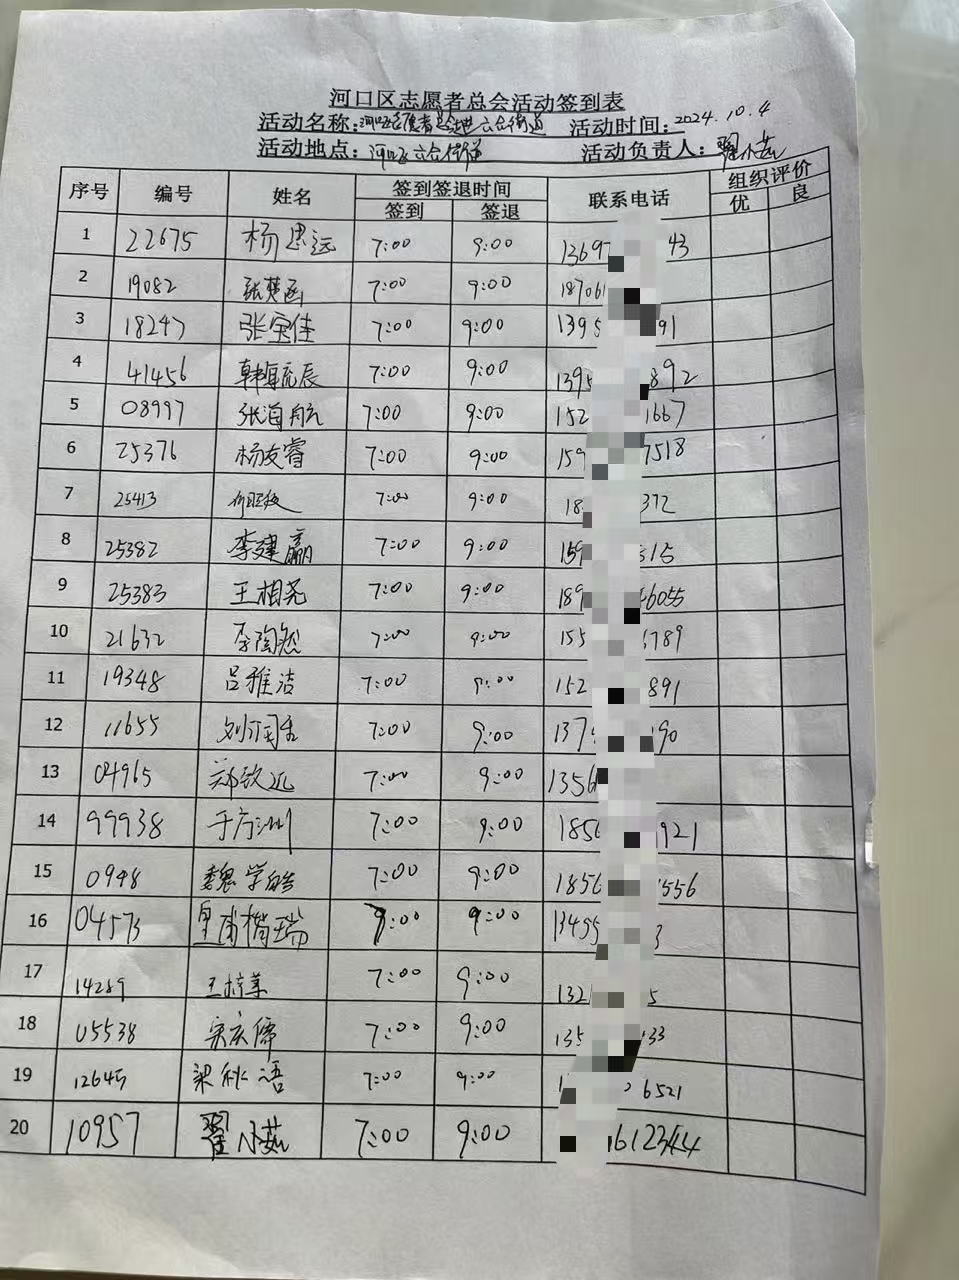 河口区志愿者总会活动签到表
活动名称：河口区志愿者总会进六合街道 活动时间：2024.10.4
活动地点：河口区六合街道 活动负责人：翟小茹
序号 编号 姓名 签到签退时间 联系电话 组织评价
签到 签退 优 良
1 22675 杨思远 7:00 9:00 1369 43
2 19082 张楚函 7:00 9:00 18706
3 18247 张宝佳 7:00 9:00 1395 91
4 41456 韩毓辰 7:00 9:00 1395 892
5 08997 张海航 7:00 9:00 152 1667
6 25376 杨友睿 7:00 9:00 159 7518
7 25413 7:00 9:00 18 372
8 25382 李建赢 7:00 9:00 159 515
9 25383 王相尧 7:00 9:00 189 6055
10 21632 李陶然 7:00 9:00 155 789
11 19348 吕雅洁 7:00 9:00 152 891
12 11655 7:00 9:00 137 190
13 04965 郑致远 7:00 9:00 1356
14 99938 于方洲 7:00 9:00 1856 921
15 0948 魏学皓 7:00 9:00 1856 556
16 04573 皇甫楷瑞 9:00 9:00 13455 3
17 14289 王梓菡 7:00 9:00 132 5
18 05538 宋庆伟 7:00 9:00 135 33
19 12645 梁秋语 7:00 9:00 1 6521
20 10957 翟小茹 7:00 9:00 1612344